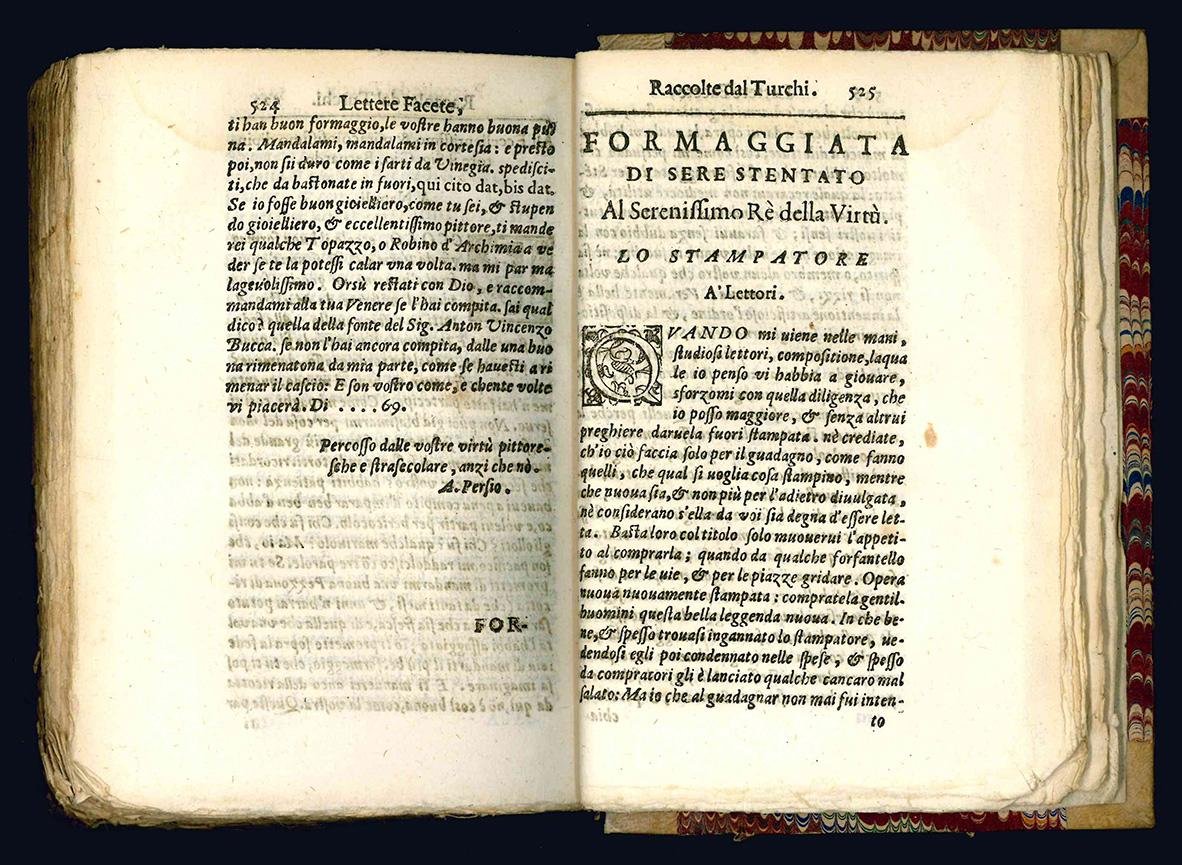 524 Lettere Facete,
ti han buon formaggio, le voſtre hanno buona
na. Mandalami, mandalami in corteſia: e preſto
poi, non ſii duro come i ſarti da Vinegia. spediſci-
ti, che da baſtonate in fuori, qui cito dat, bis dat.
Se io foſſe buon gioielliero, come tu sei, & ſtupen
do gioielliero, & eccellentiſſimo pittore, ti mande
rei qualche Topazzo, o Robino d'Archimia a ve
der se te la poteſſi calar vna volta. ma mi par ma
lageuoliſſimo. Orsù reſtati con Dio, e raccom-
mandami alla tua Venere ſe l'hai compita. ſai qual
dico? quella della fonte del Sig. Anton Vincenzo
Bucca. ſe non l'hai ancora compita, dalle una buo
na rimenatona da mia parte, come ſe haueſti a ri
menar il caſcio: E ſon voſtro come, e chente volte
vi piacerà. Di . . . . 69.
Percoſſo dalle voſtre virtù pittore-
ſche e ſtraſecolare, anzi che nò.
A. Perſio.
FOR-
Raccolte dal Turchi. 525
FORMAGGIATA
DI SERE STENTATO
Al Sereniſſimo Rè della Virtù.
LO STAMPATORE
A' Lettori.
QVANDO mi uiene nelle mani,
ſtudioſi lettori, compoſitione, laqua
le io penſo vi habbia a giouare,
sforzomi con quella diligenza, che
io poſſo maggiore, & ſenza altrui
preghiere daruela fuori ſtampata. nè crediate,
ch'io ciò faccia ſolo per il guadagno, come fanno
quelli, che qual ſi uoglia coſa ſtampino, mentre
che nuoua ſia, & non più per l'adietro diuulgata,
nè conſiderano s'ella da voi ſia degna d'eſſere let-
ta. Baſta loro col titolo ſolo muouerui l'appeti-
to al comprarla; quando da qualche forfantello
fanno per le uie, & per le piazze gridare. Opera
nuoua nuouamente ſtampata: compratela gentil-
huomini queſta bella leggenda nuoua. In che be-
ne, & ſpeſſo trouaſi ingannato lo ſtampatore, ue-
dendoſi egli poi condennato nelle ſpeſe, & ſpeſſo
da compratori gli è lanciato qualche cancaro mal
ſalato: Ma io che al guadagnar non mai fui inten-
to